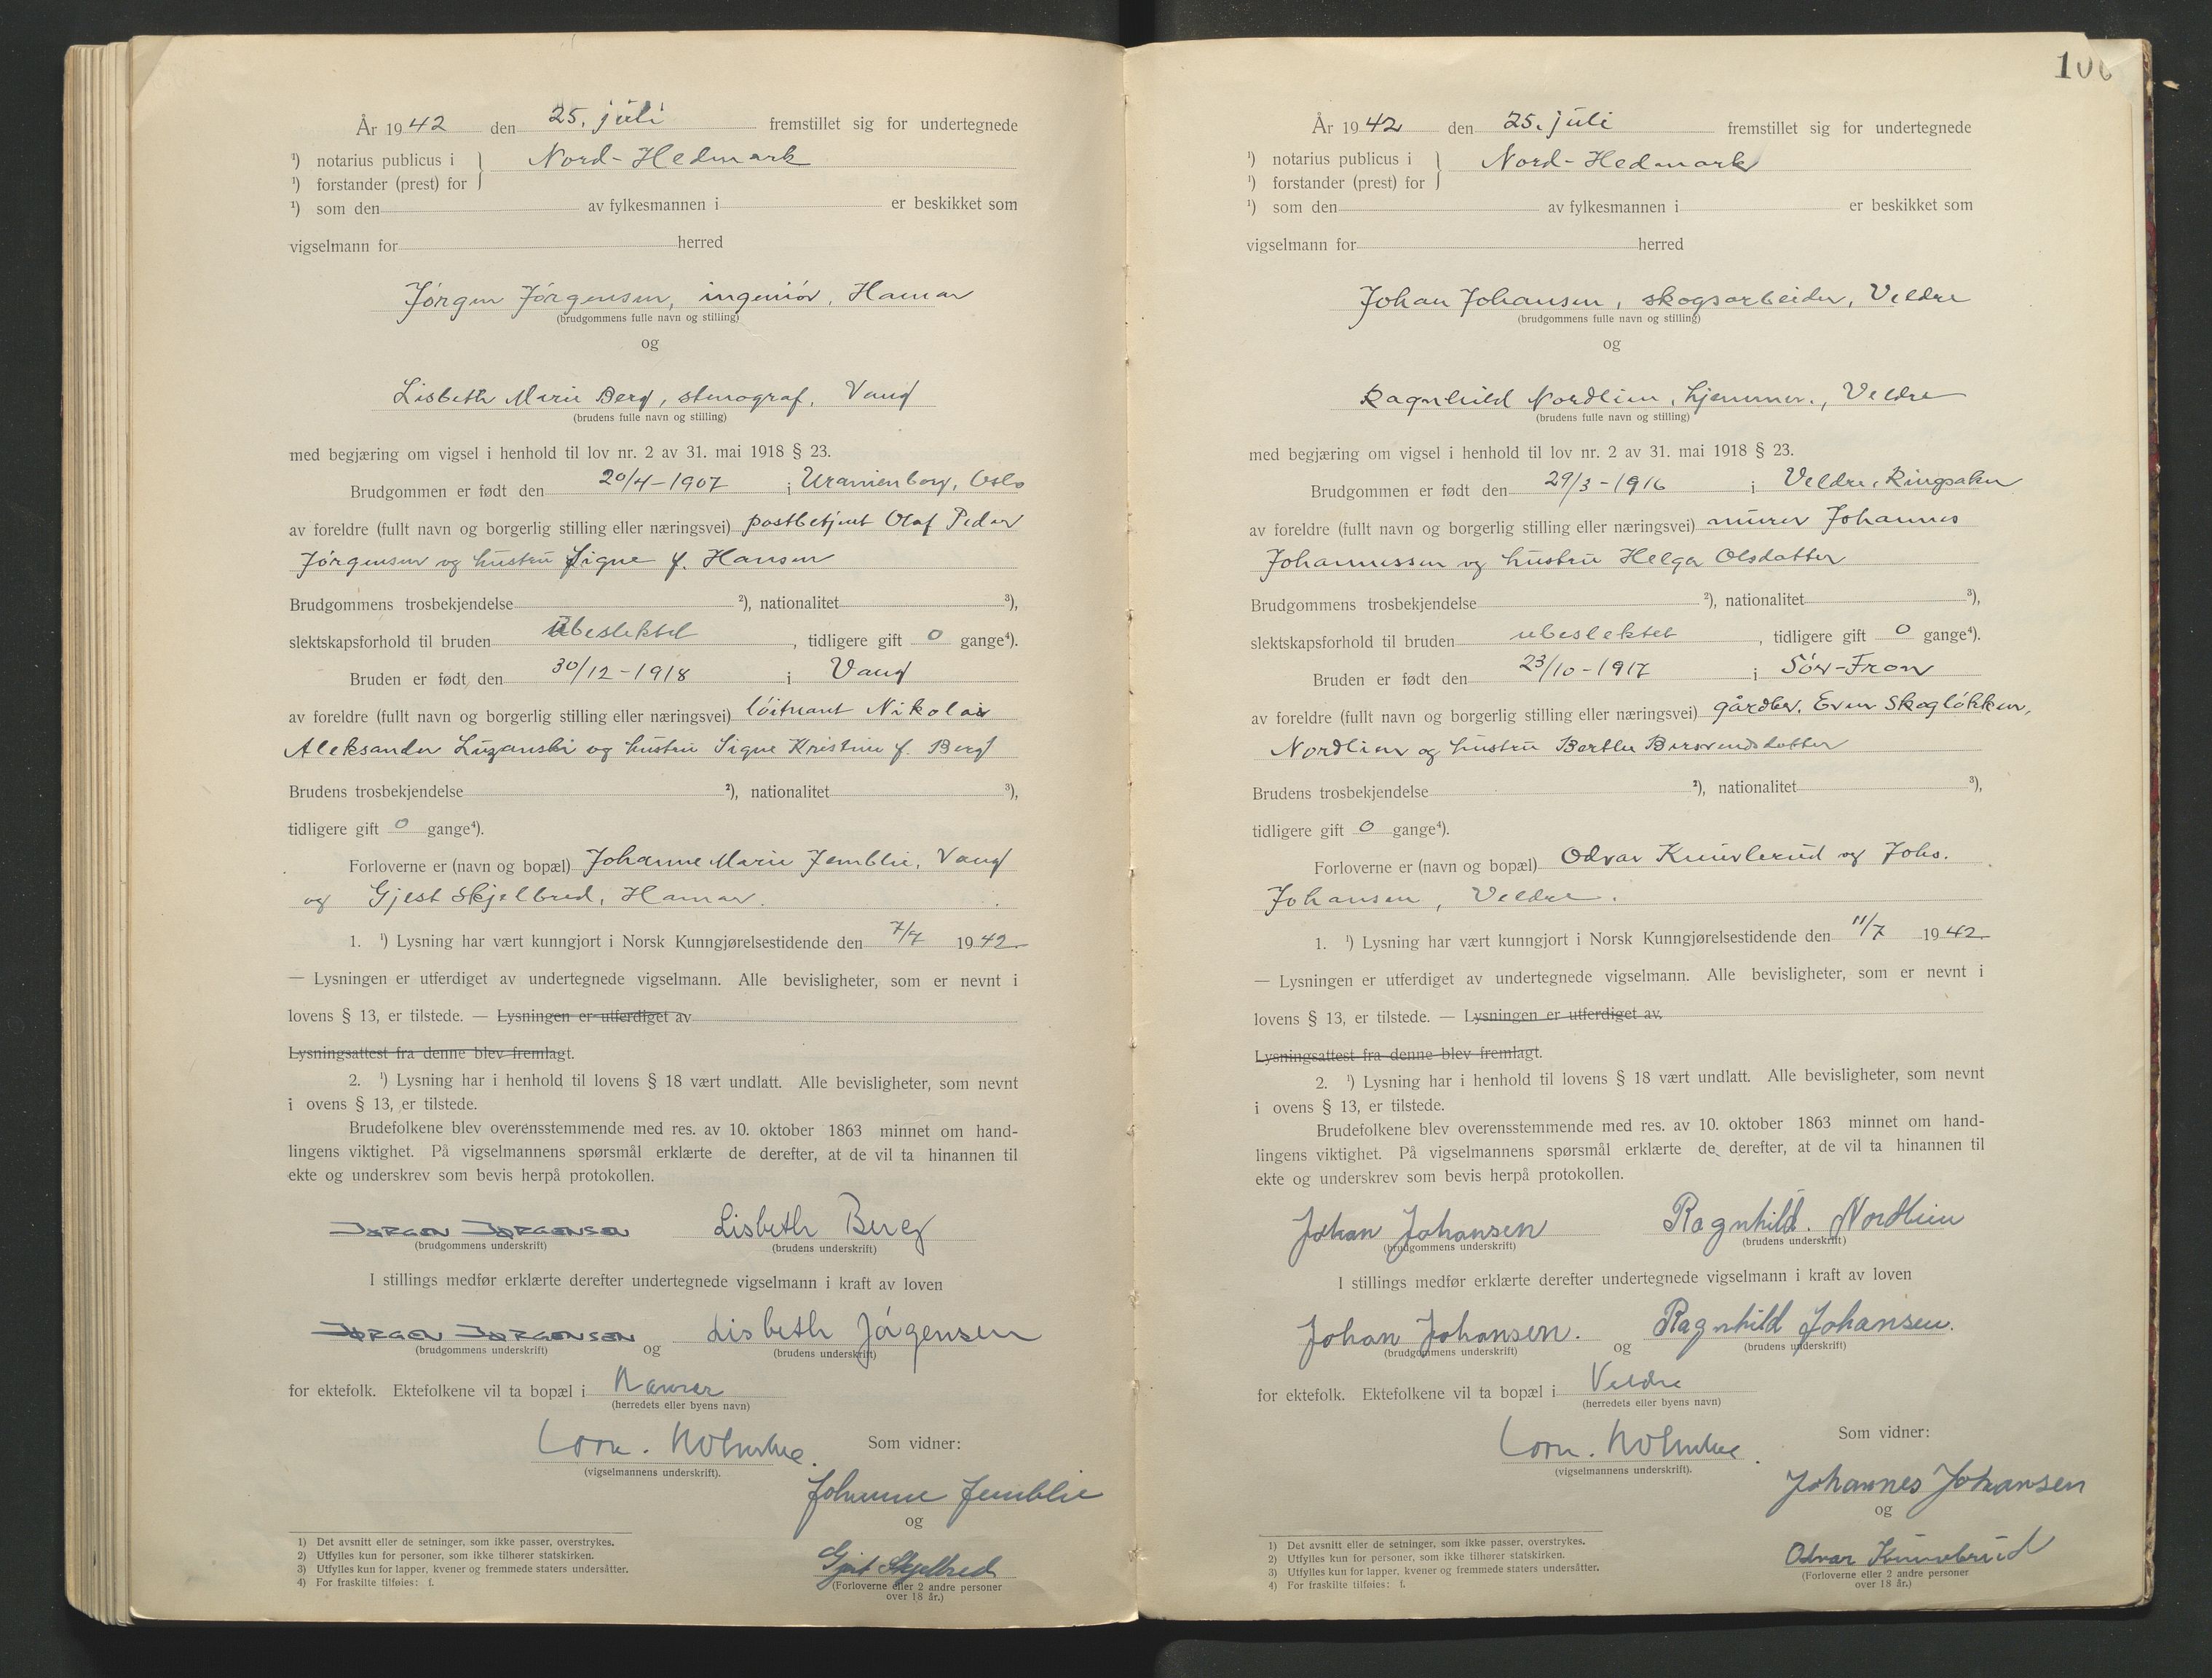 År 1942 den 25. juli fremstillet sig for undertegnede
¹) notarius publicus i } Nord-Hedmark
¹) forstander (prest) for
¹) som den av fylkesmannen i er beskikket som
vigselmann for herred
Jörgen Jörgensen, ingeniör, Hamar
(brudgommens fulle navn og stilling)
og
Lisbeth Marie Berg, stenograf, Vang
(brudens fulle navn og stilling)
med begjæring om vigsel i henhold til lov nr. 2 av 31. mai 1918 § 23.
Brudgommen er født den 20/4-1907 i Uranienborg, Oslo
av foreldre (fullt navn og borgerlig stilling eller næringsvei) postbetjent Olaf Peder
Jörgensen og hustru Signe f. Hansen
Brudgommens trosbekjendelse ²), nationalitet ³),
slektskapsforhold til bruden Ubeslektet, tidligere gift 0 gange⁴).
Bruden er født den 30/12-1918 i Vang
av foreldre (fullt navn og borgerlig stilling eller næringsvei) löitnant Nikolai
Aleksander Luzanski og hustru Signe Kristine f. Berg
Brudens trosbekjendelse ²), nationalitet ³),
tidligere gift 0 gange⁴).
Forloverne er (navn og bopæl) Johanne Marie Jemblie, Vang
og Gjest Skjelbred, Hamar.
1. ¹) Lysning har vært kunngjort i Norsk Kunngjørelsestidende den 7/7 1942
— Lysningen er utferdiget av undertegnede vigselmann. Alle bevisligheter, som er nevnt i
lovens § 13, er tilstede. — Lysningen er utferdiget av
Lysningsattest fra denne blev fremlagt.
2. ¹) Lysning har i henhold til lovens § 18 vært undlatt. Alle bevisligheter, som nevnt
i ovens § 13, er tilstede.
Brudefolkene blev overensstemmende med res. av 10. oktober 1863 minnet om hand-
lingens viktighet. På vigselmannens spørsmål erklærte de derefter, at de vil ta hinannen til
ekte og underskrev som bevis herpå protokollen.
JØRGEN JØRGENSEN Lisbeth Berg
(brudgommens underskrift) (brudens underskrift)
I stillings medfør erklærte derefter undertegnede vigselmann i kraft av loven
JØRGEN JØRGENSEN og Lisbeth Jörgensen
(brudgommens underskrift) (brudens underskrift)
for ektefolk. Ektefolkene vil ta bopæl i Hamar
(herredets eller byens navn)
Corn. Holmboe.
(vigselmannens underskrift).
Som vidner:
Johanne Jemblie
og
Gjest Skjelbred
(Forloverne eller 2 andre personer
over 18 år.)
1) Det avsnitt eller de setninger, som ikke passer, overstrykes.
2) Utfylles kun for personer, som ikke tilhører statskirken.
3) Utfylles kun for lapper, kvener og fremmede staters undersåtter.
4) For fraskilte tilføies: f.
År 1942 den 25. juli fremstillet sig for undertegnede
¹) notarius publicus i } Nord-Hedmark
¹) forstander (prest) for
¹) som den av fylkesmannen i er beskikket som
vigselmann for herred
Johan Johansen, skogsarbeider, Veldre
(brudgommens fulle navn og stilling)
og
Ragnhild Nordlien, hjemmev., Veldre
(brudens fulle navn og stilling)
med begjæring om vigsel i henhold til lov nr. 2 av 31. mai 1918 § 23.
Brudgommen er født den 29/3-1916 i Veldre, Ringsaker
av foreldre (fullt navn og borgerlig stilling eller næringsvei) murer Johannes
Johannessen og hustru Helga Olsdatter
Brudgommens trosbekjendelse ²), nationalitet ³),
slektskapsforhold til bruden ubeslektet, tidligere gift 0 gange⁴).
Bruden er født den 23/10-1917 i Sör-Fron
av foreldre (fullt navn og borgerlig stilling eller næringsvei) gårdbr. Even Skoglökken,
Nordlien og hustru Berthe
Brudens trosbekjendelse ²), nationalitet ³),
tidligere gift 0 gange⁴).
Forloverne er (navn og bopæl) Odvar og Johs.
Johansen, Veldre.
1. ¹) Lysning har vært kunngjort i Norsk Kunngjørelsestidende den 11/7 1942
— Lysningen er utferdiget av undertegnede vigselmann. Alle bevisligheter, som er nevnt i
lovens § 13, er tilstede. — Lysningen er utferdiget av.
Lysningsattest fra denne blev fremlagt.
2. ¹) Lysning har i henhold til lovens § 18 vært undlatt. Alle bevisligheter, som nevnt
i ovens § 13, er tilstede.
Brudefolkene blev overensstemmende med res. av 10. oktober 1863 minnet om hand-
lingens viktighet. På vigselmannens spørsmål erklærte de derefter, at de vil ta hinannen til
ekte og underskrev som bevis herpå protokollen.
Johan Johansen Ragnhild. Nordlien
(brudgommens underskrift) (brudens underskrift)
I stillings medfør erklærte derefter undertegnede vigselmann i kraft av loven
Johan Johansen. og Ragnhild Johansen.
(brudgommens underskrift) (brudens underskrift)
for ektefolk. Ektefolkene vil ta bopæl i Veldre
(herredets eller byens navn)
Corn. Holmboe.
(vigselmannens underskrift).
Som vidner:
Johannes Johansen
og
Odvar
(Forloverne eller 2 andre personer
over 18 år.)
1) Det avsnitt eller de setninger, som ikke passer, overstrykes.
2) Utfylles kun for personer, som ikke tilhører statskirken.
3) Utfylles kun for lapper, kvener og fremmede staters undersåtter.
4) For fraskilte tilføies: f.